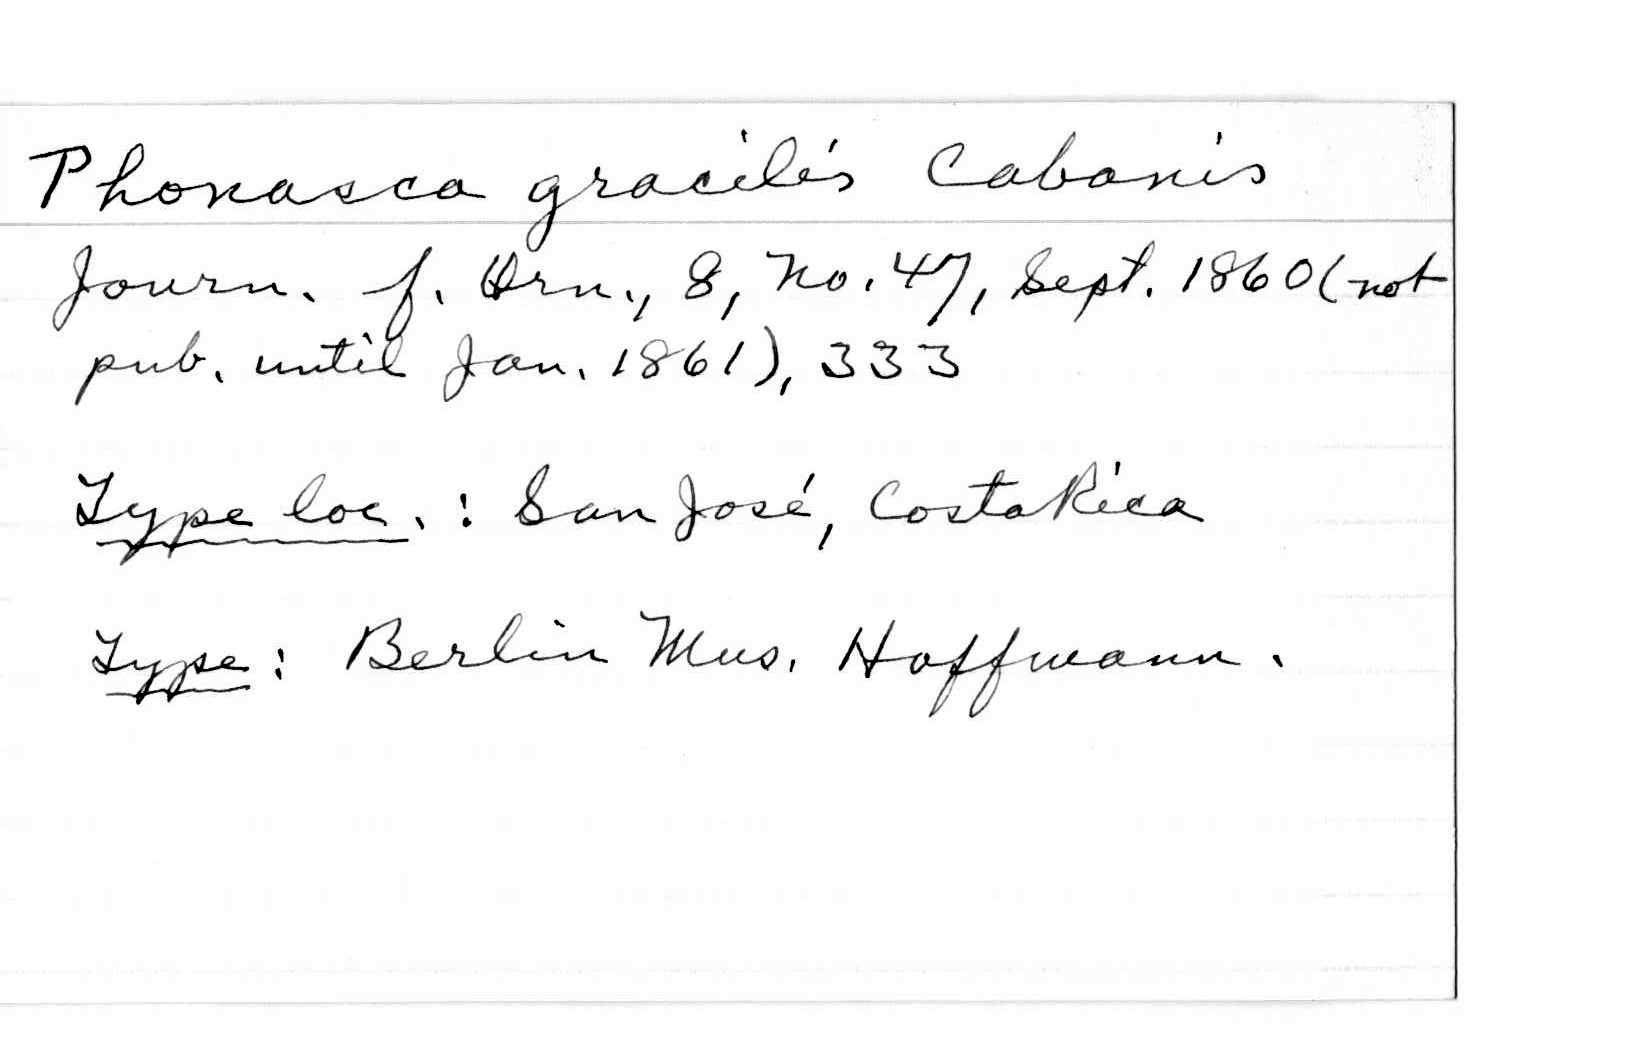 Phonasca gracilis Cabanis
Journ. f. Orn., 8, No. 47, Sept. 1860 (not
pub. until Jan. 1861), 333
Type loc. : San José, Costa Rica
Type : Berlin Mus. Hoffmann.